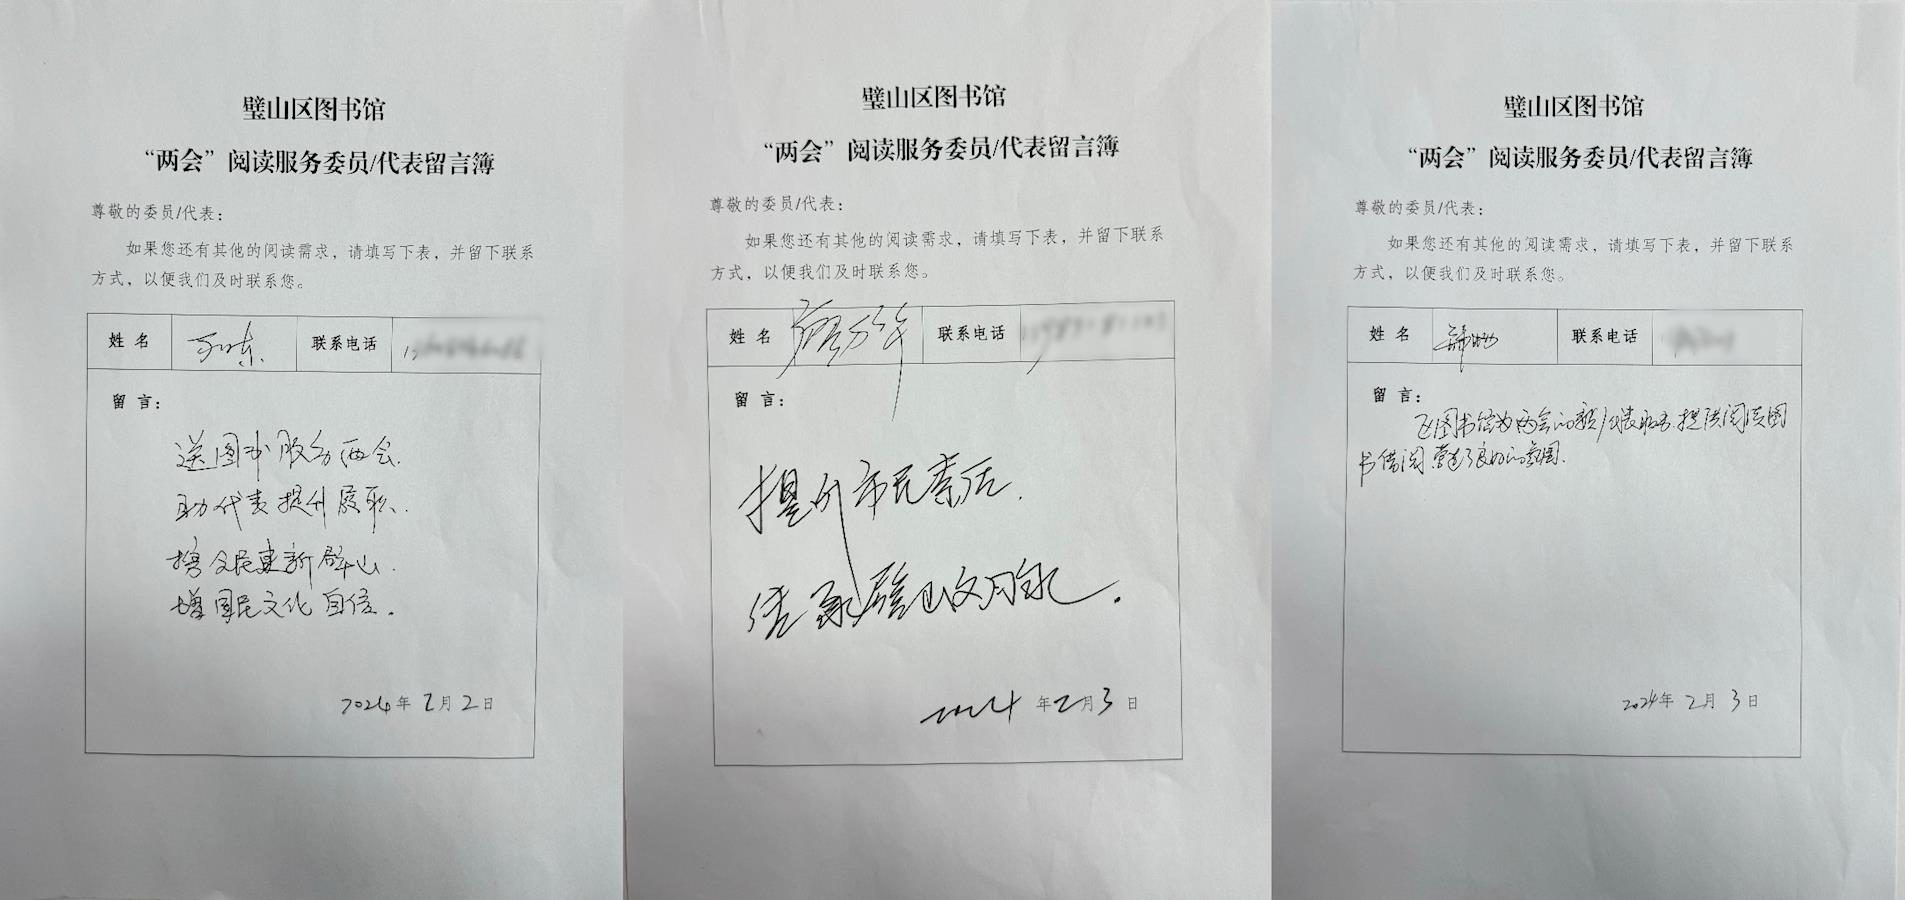 璧山区图书馆
“两会”阅读服务委员/代表留言簿
尊敬的委员/代表：
如果您还有其他的阅读需求，请填写下表，并留下联系
方式，以便我们及时联系您。
姓名
联系电话
留言：
送图书服务两会.
助代表提升履职.
携全民建新璧山.
增国民文化自信.
2024年2月2日
璧山区图书馆
“两会”阅读服务委员/代表留言簿
尊敬的委员/代表：
如果您还有其他的阅读需求，请填写下表，并留下联系
方式，以便我们及时联系您。
姓名
联系电话
留言：
提升市民素质.
传承璧山文脉.
2024年2月3日
璧山区图书馆
“两会”阅读服务委员/代表留言簿
尊敬的委员/代表：
如果您还有其他的阅读需求，请填写下表，并留下联系
方式，以便我们及时联系您。
姓名
联系电话
留言：
图书馆为两会的委员/代表服务.提供阅读图
书借阅 营造了良好的氛围.
2024年2月3日